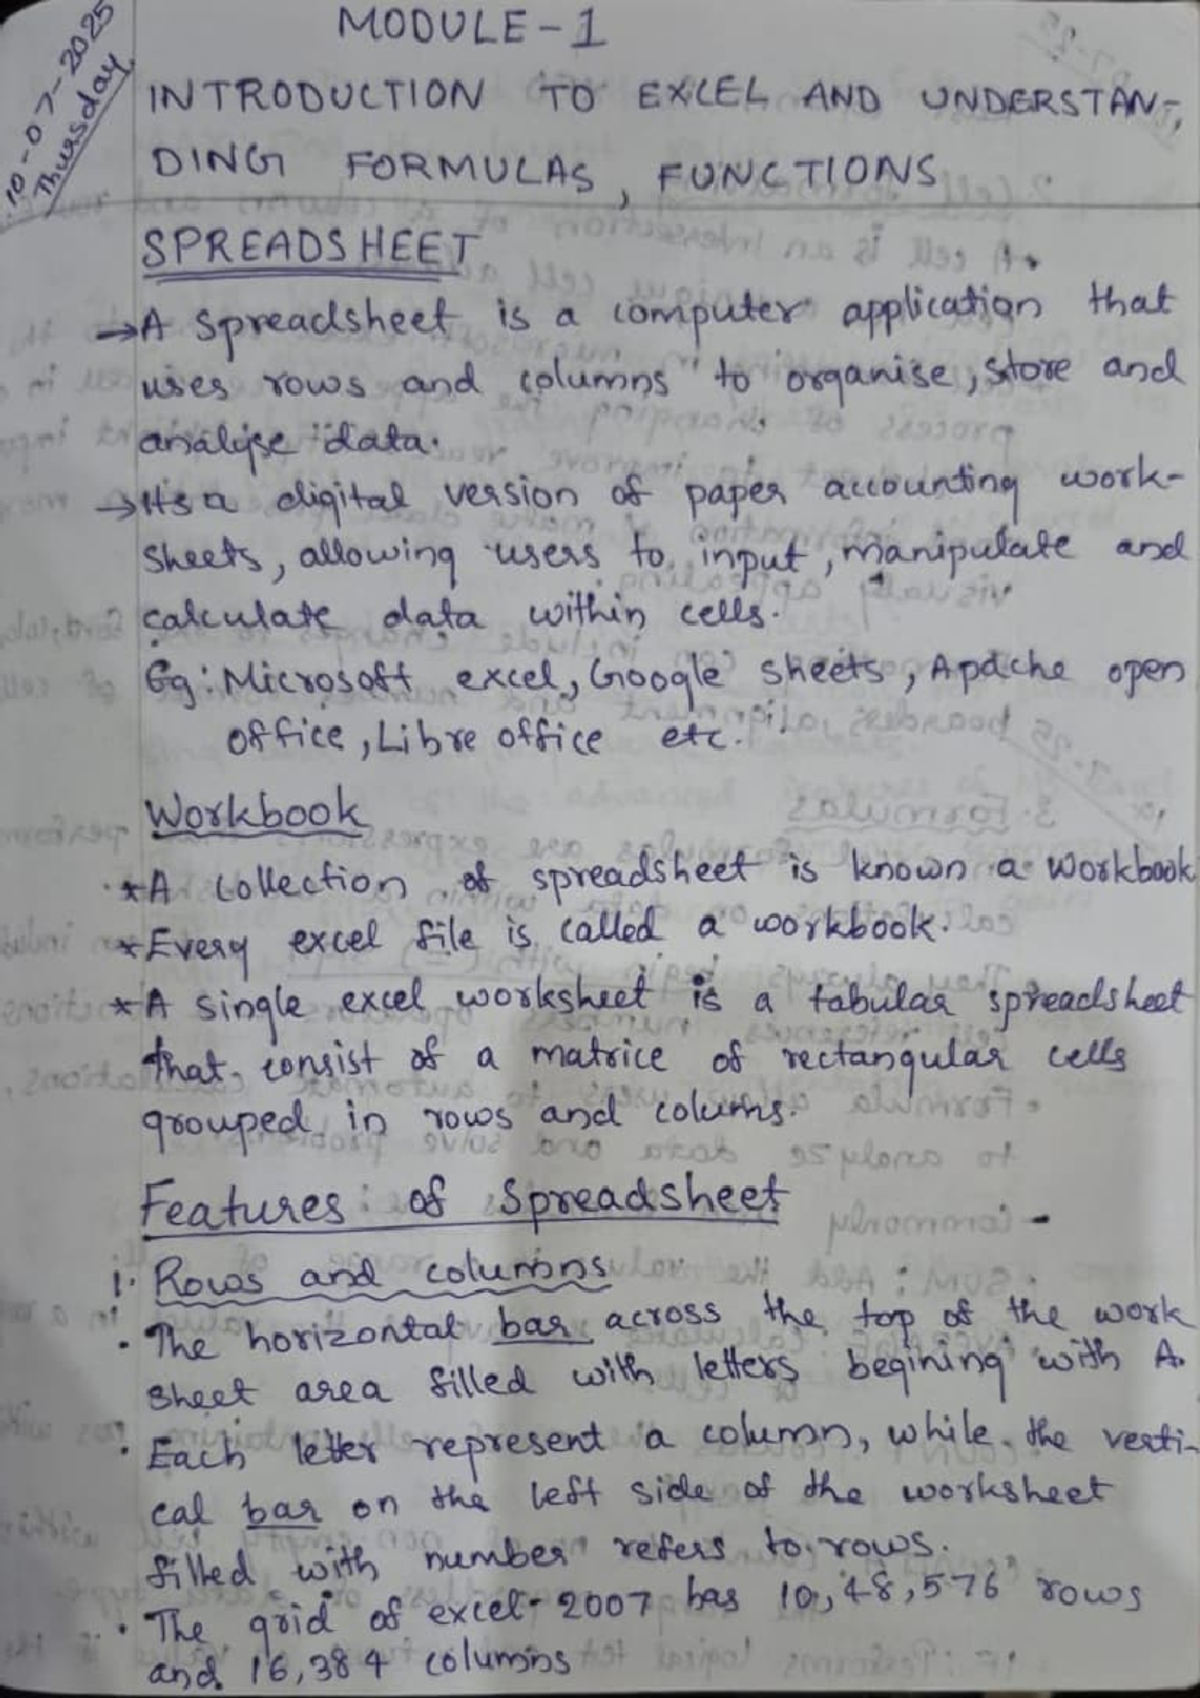 10-07-2025
Thursday
MODULE-1
INTRODUCTION TO EXCEL AND UNDERSTAN-
DING FORMULAS, FUNCTIONS
SPREADSHEET
→A spreadsheet is a computer application that
uses rows and columns to organise, store and
analyse data.
→It's a digital version of paper accounting work-
sheets, allowing users to input, manipulate and
calculate data within cells.
Eg: Microsoft excel, Google sheets, Apache open
office, Libre office etc.
Workbook
*A collection of spreadsheet is known a workbook
*Every excel file is called a workbook.
*A single excel worksheet is a tabular spreadsheet
that consist of a matrice of rectangular cells
grouped in rows and colums.
Features of Spreadsheet
1. Rows and columns
• The horizontal bar across the top of the work
sheet area filled with letters begining with A.
• Each letter represent a column, while the verti-
cal bar on the left side of the worksheet
filled with number refers to rows.
• The grid of excel-2007 has 10,48,576 rows
and 16,384 columns